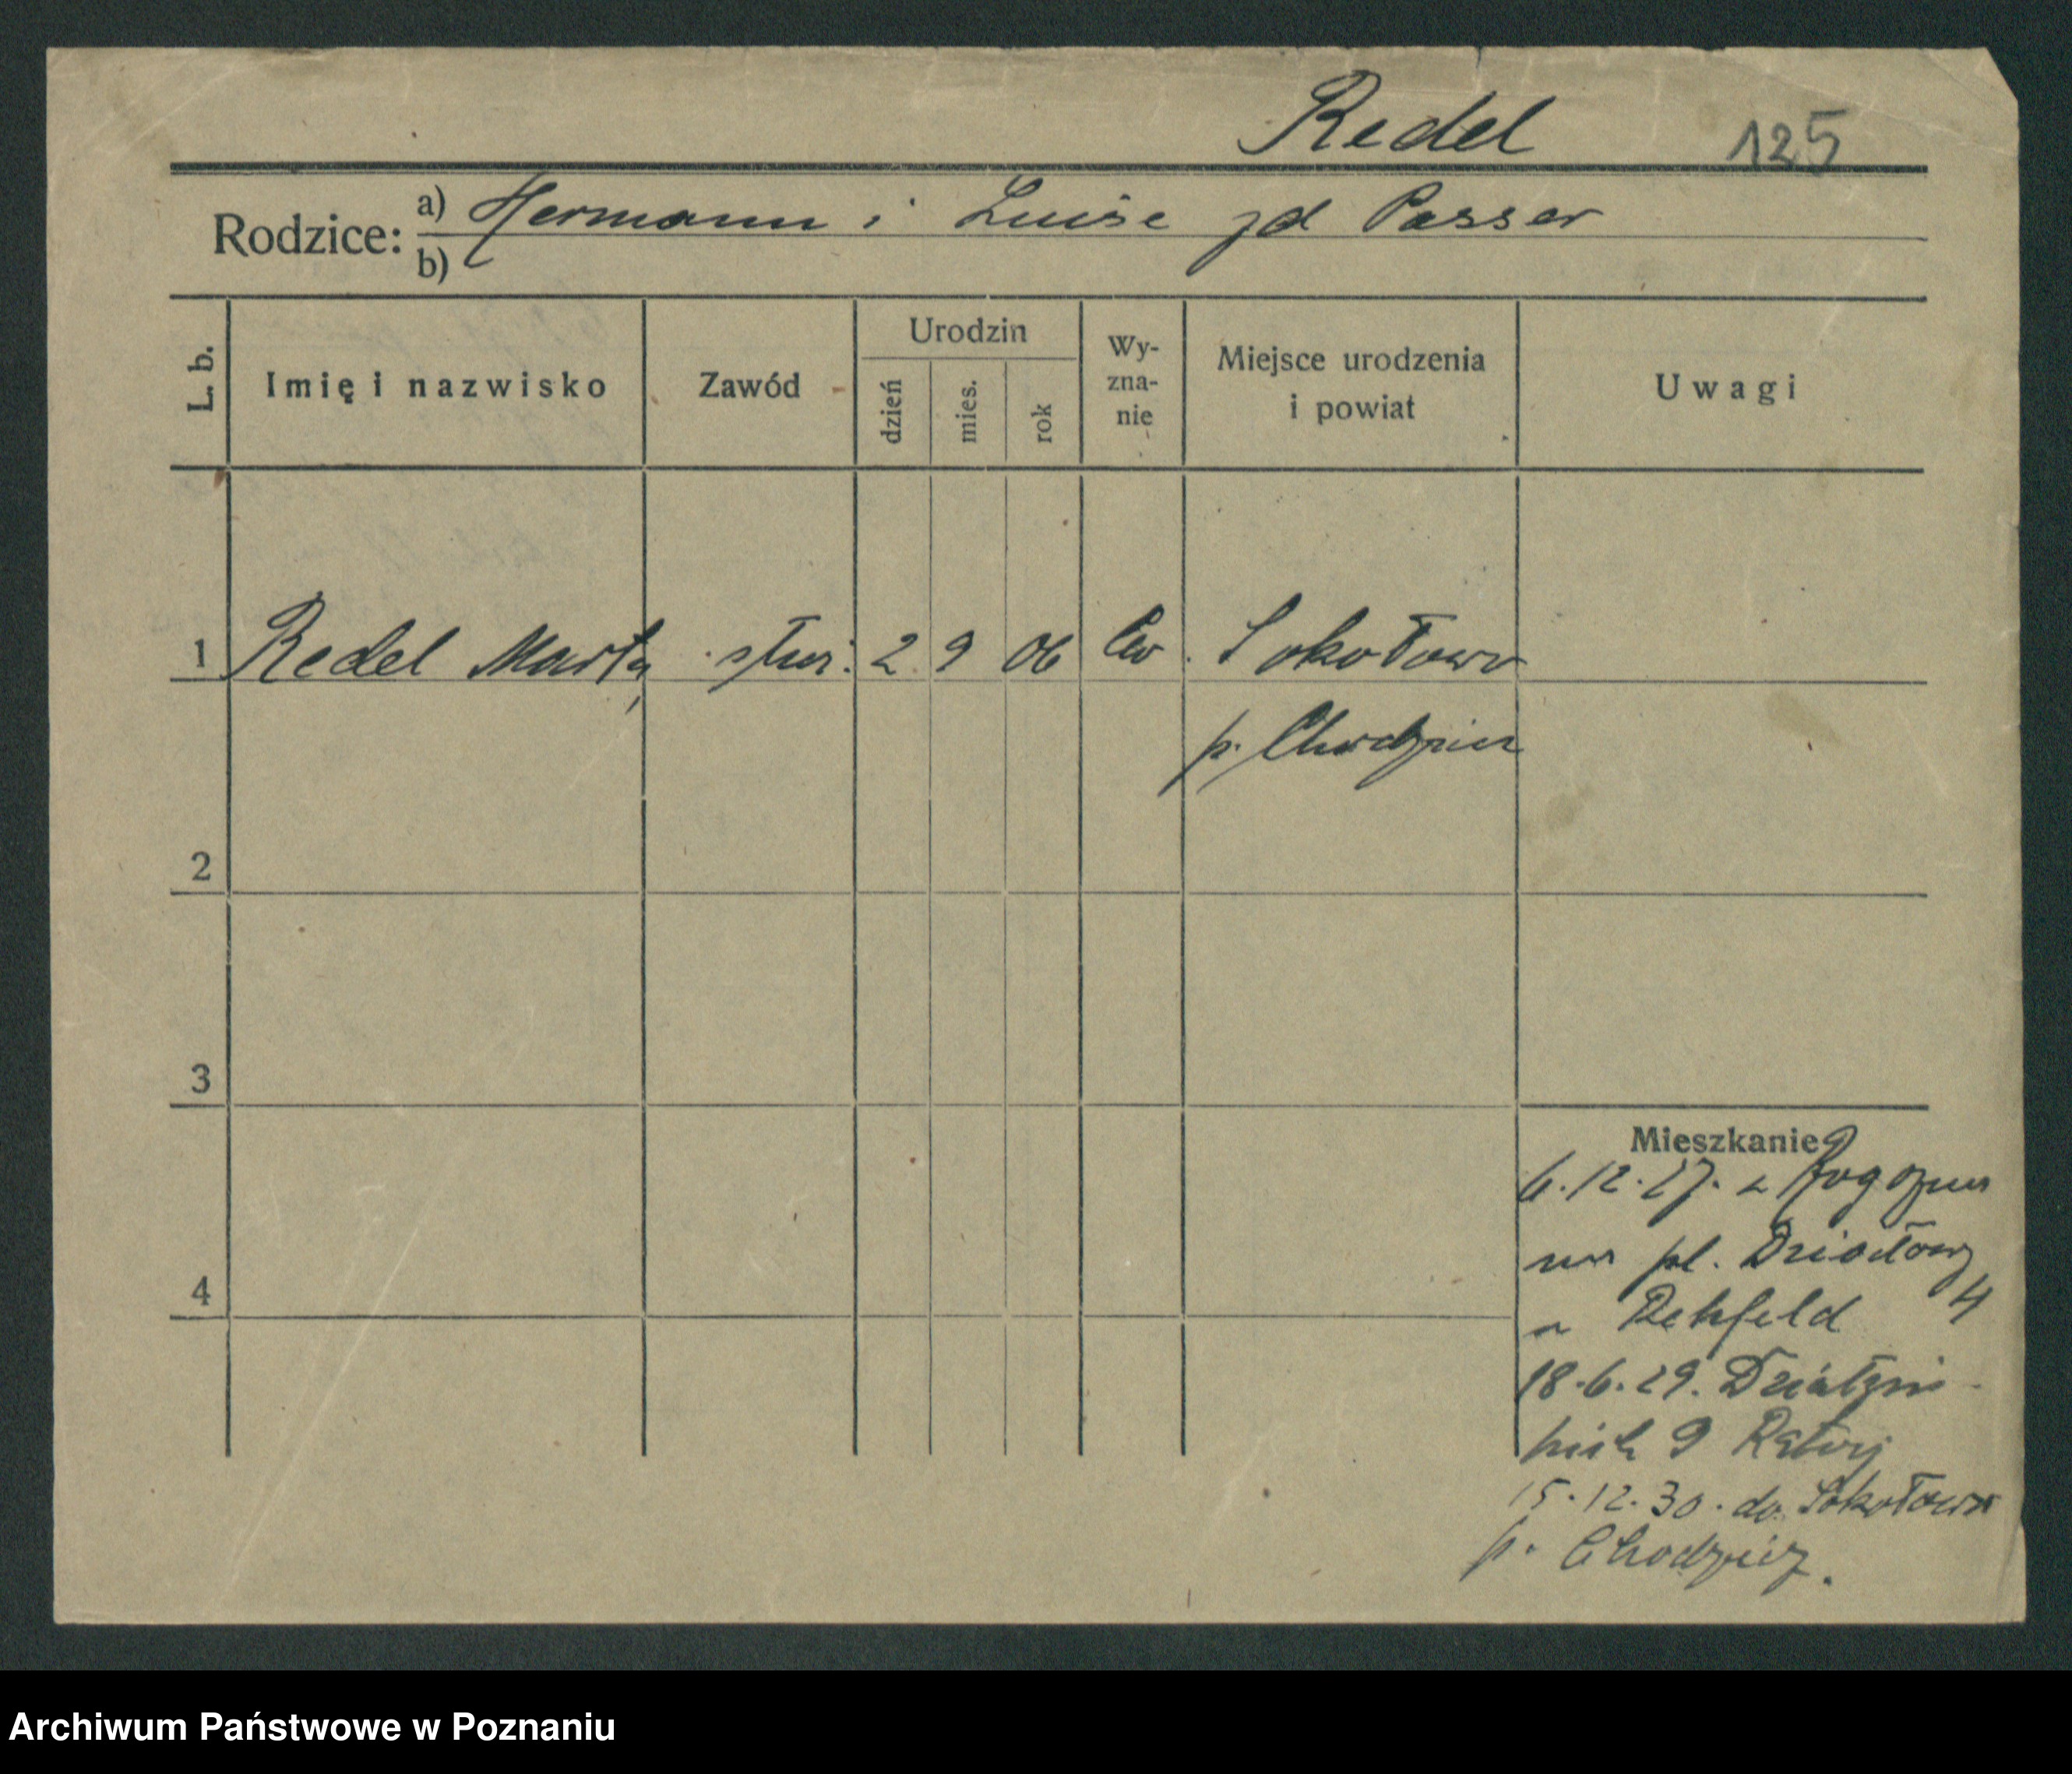 Redel 125
Rodzice: a) Hermann i Luise zd Passer
b)
L. b. Imię i nazwisko Zawód Urodzin dzień mies. rok Wy-zna-nie Miejsce urodzenia i powiat Uwagi
1 Redel Marta służ. 2 9 06 Ew. Sokołowo
p. Chodzież
2
3
4
Mieszkanie
6.12.27. z Rogoźna
na pl. Działowy
4
u Rehfeld
18.6.29. Działyń-
skich 9 Rataj
15.12.30. do Sokołowa
p. Chodzież.
Archiwum Państwowe w Poznaniu